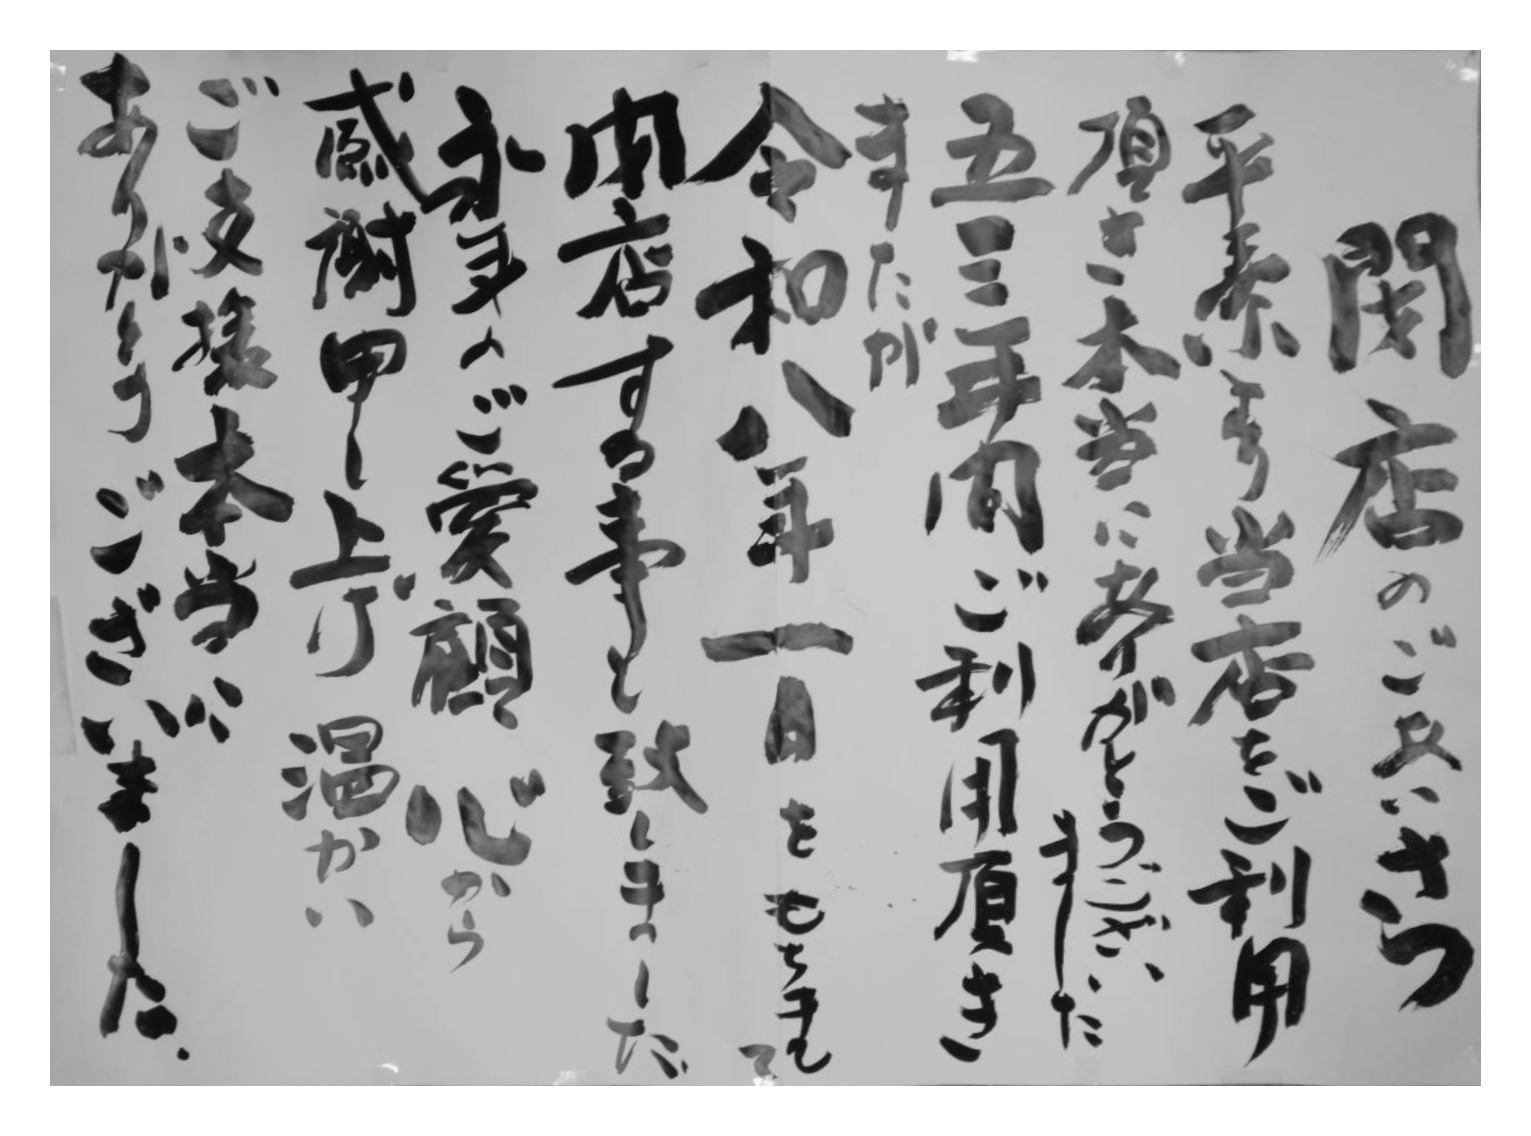 閉店のごあいさつ
平素より当店をご利用
頂き本当にありがとうござい
ました
五三年間ご利用頂き
ましたが
令和八年一月をもちまして
閉店する事と致しました
永年のご愛顧心から
感謝申し上げ 温かい
ご支援本当に
ありがとうございました。